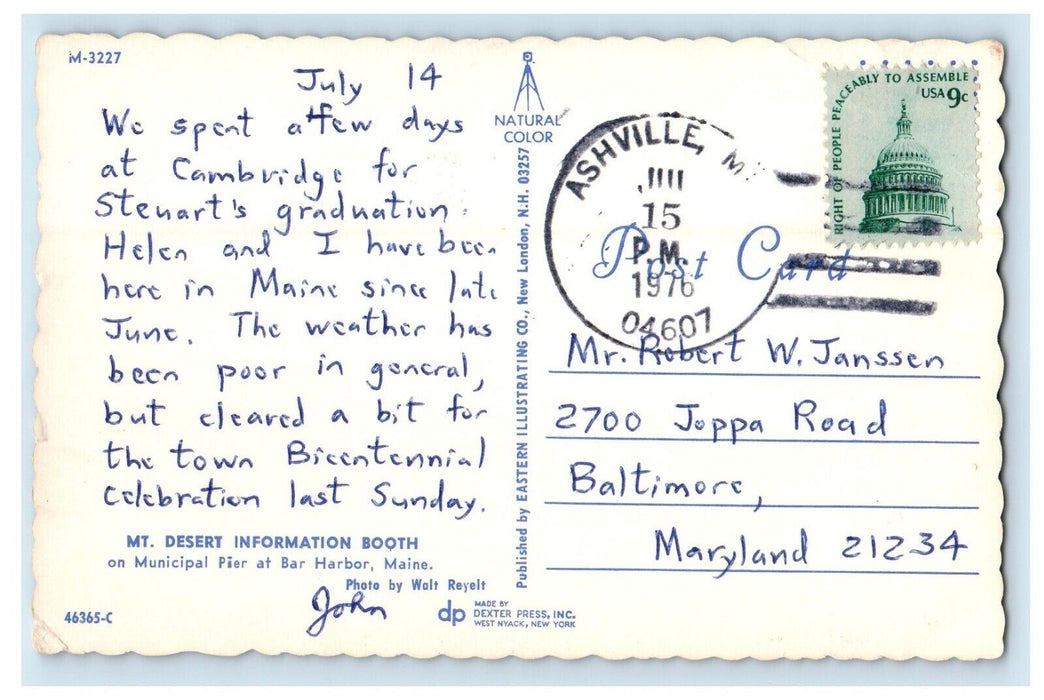 M-3227
July 14
We spent a few days
at Cambridge for
Steuart's graduation.
Helen and I have been
here in Maine since late
June. The weather has
been poor in general,
but cleared a bit for
the town Bicentennial
Celebration last Sunday.
MT. DESERT INFORMATION BOOTH
on Municipal Pier at Bar Harbor, Maine.
Photo by Walt Reyelt
John
46365-C
dp
MADE BY
DEXTER PRESS, INC.
WEST NYACK, NEW YORK
NATURAL
COLOR
Published by EASTERN ILLUSTRATING CO., New London, N.H. 03257
ASHVILLE,
15
P.M.
1976
04607
Post Card
RIGHT OF PEOPLE PEACEABLY TO ASSEMBLE
USA 9c
Mr. Robert W. Janssen
2700 Joppa Road
Baltimore,
Maryland 21234